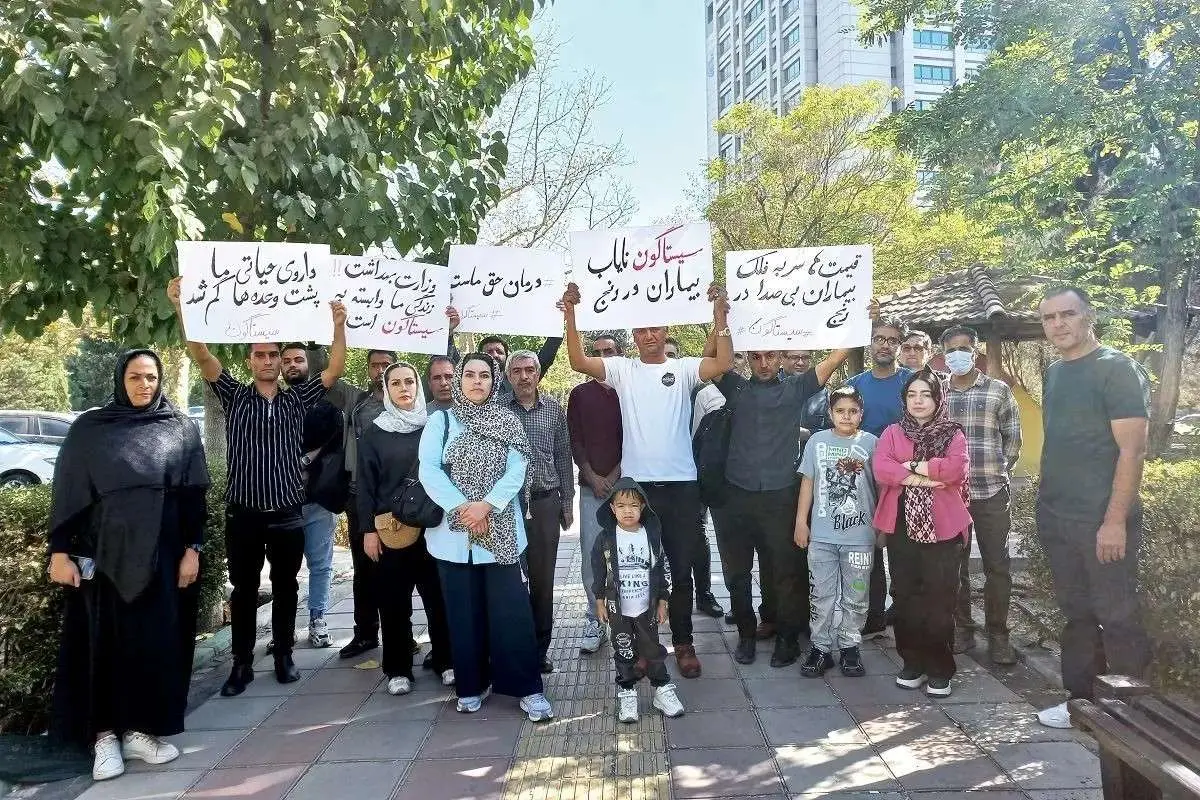 قیمت ها سر به فلک
بیماران بی صدا در
رنج
#سیستاگون
سیستاگون نایاب
بیماران در رنج
#درمان حق ماست
#سیستاگون
وزارت بهداشت!!
زندگی ما وابسته به
سیستاگون است
داروی حیاتی ما
پشت وعده ها گم شد
#سیستاگون
Black
KING